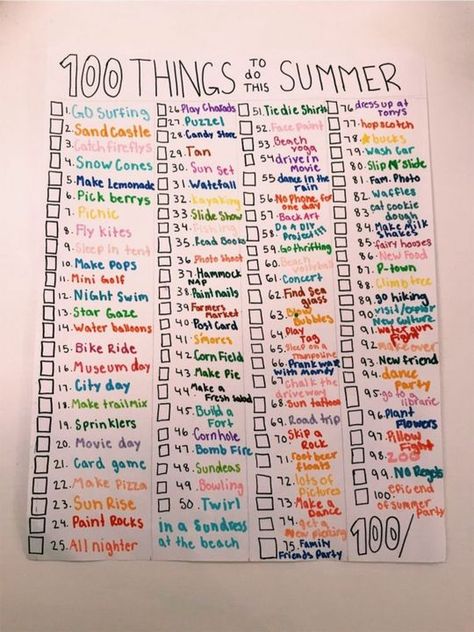 100 THINGS TO do THIS SUMMER
1. GO surfing
2. Sand Castle
3. Catch fireflys
4. Snow Cones
5. Make Lemonade
6. Pick berrys
7. Picnic
8. Fly kites
9. Sleep in tent
10. Make Pops
11. Mini Golf
12. Night Swim
13. Star Gaze
14. Water balloons
15. Bike Ride
16. Museum day
17. City day
18. Make trailmix
19. Sprinklers
20. Movie day
21. Card game
22. Make Pizza
23. Sun Rise
24. Paint Rocks
25. All nighter
26. Play Charads
27. Puzzel
28. Candy Store
29. Tan
30. Sun Set
31. Watefall
32. Kayaking
33. Slide Show
34. Fishing
35. Read Books
36. Photo Shoot
37. Hammock
NAP
38. Paint nails
39. Farmers
Market
40. Post Card
41. S'mores
42. Corn Field
43. Make Pie
44. Make a
Fresh Salad
45. Build a
Fort
46. Cornhole
47. Bomb Fire
48. Sundeas
49. Bowling
50. Twirl
in a Sundress
at the beach
51. Tie die Shirts
52. Face paint
53. Beach
yoga
54. drive in
movie
55. dance in the
rain
56. No Phone for
one day
57. Back Art
58. Do A DIY
Project!!!
59. Go thrifting
60. Beach
volleyball
61. Concert
62. Find Sea
glass
63. Blow
Bubbles
64. Play
Tag
65. Sleep on a
trampoline
66. Prank war
with
67. Chalk the
driveway
68. Sun tattoo
69. Road trip
70. Skip a
Rock
71. root beer
floats
72. lots of
Pictures
73. Make a
Dance
74. get a
New piercing
75. Family
Friends Party
76. dress up at
Tonys
77. hopscotch
78. bucks
79. Wash Car
80. Slip N' Slide
81. Fam. Photo
82. Waffles
83. eat cookie
dough
84. Make Milk
Shakes
85. fairy houses
86. New Food
87. P-town
88. Climb tree
89. go hiking
90. visit/explor
New Culture
91. water gun
Fight
92. makeover
93. New friend
94. dance
Party
95. go to a
librarie
96. Plant
Flowers
97. Pillow
Fight
98. ZOO
99. No Regets
100. epic end
of summer
Party
100/